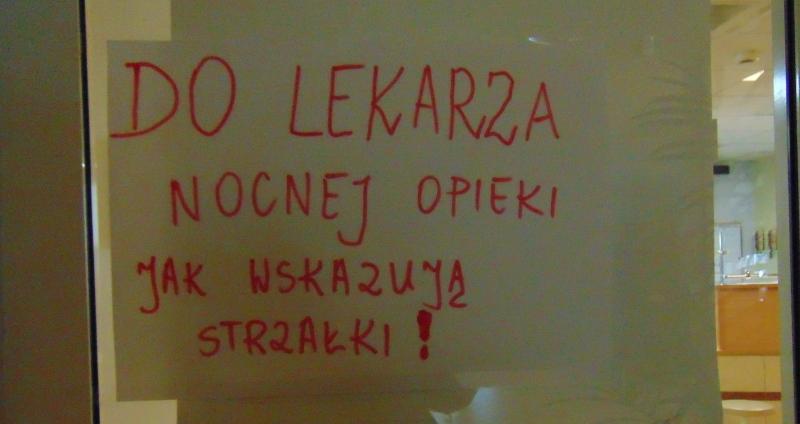 DO LEKARZA
NOCNEJ OPIEKI
JAK WSKAZUJĄ
STRZAŁKI!